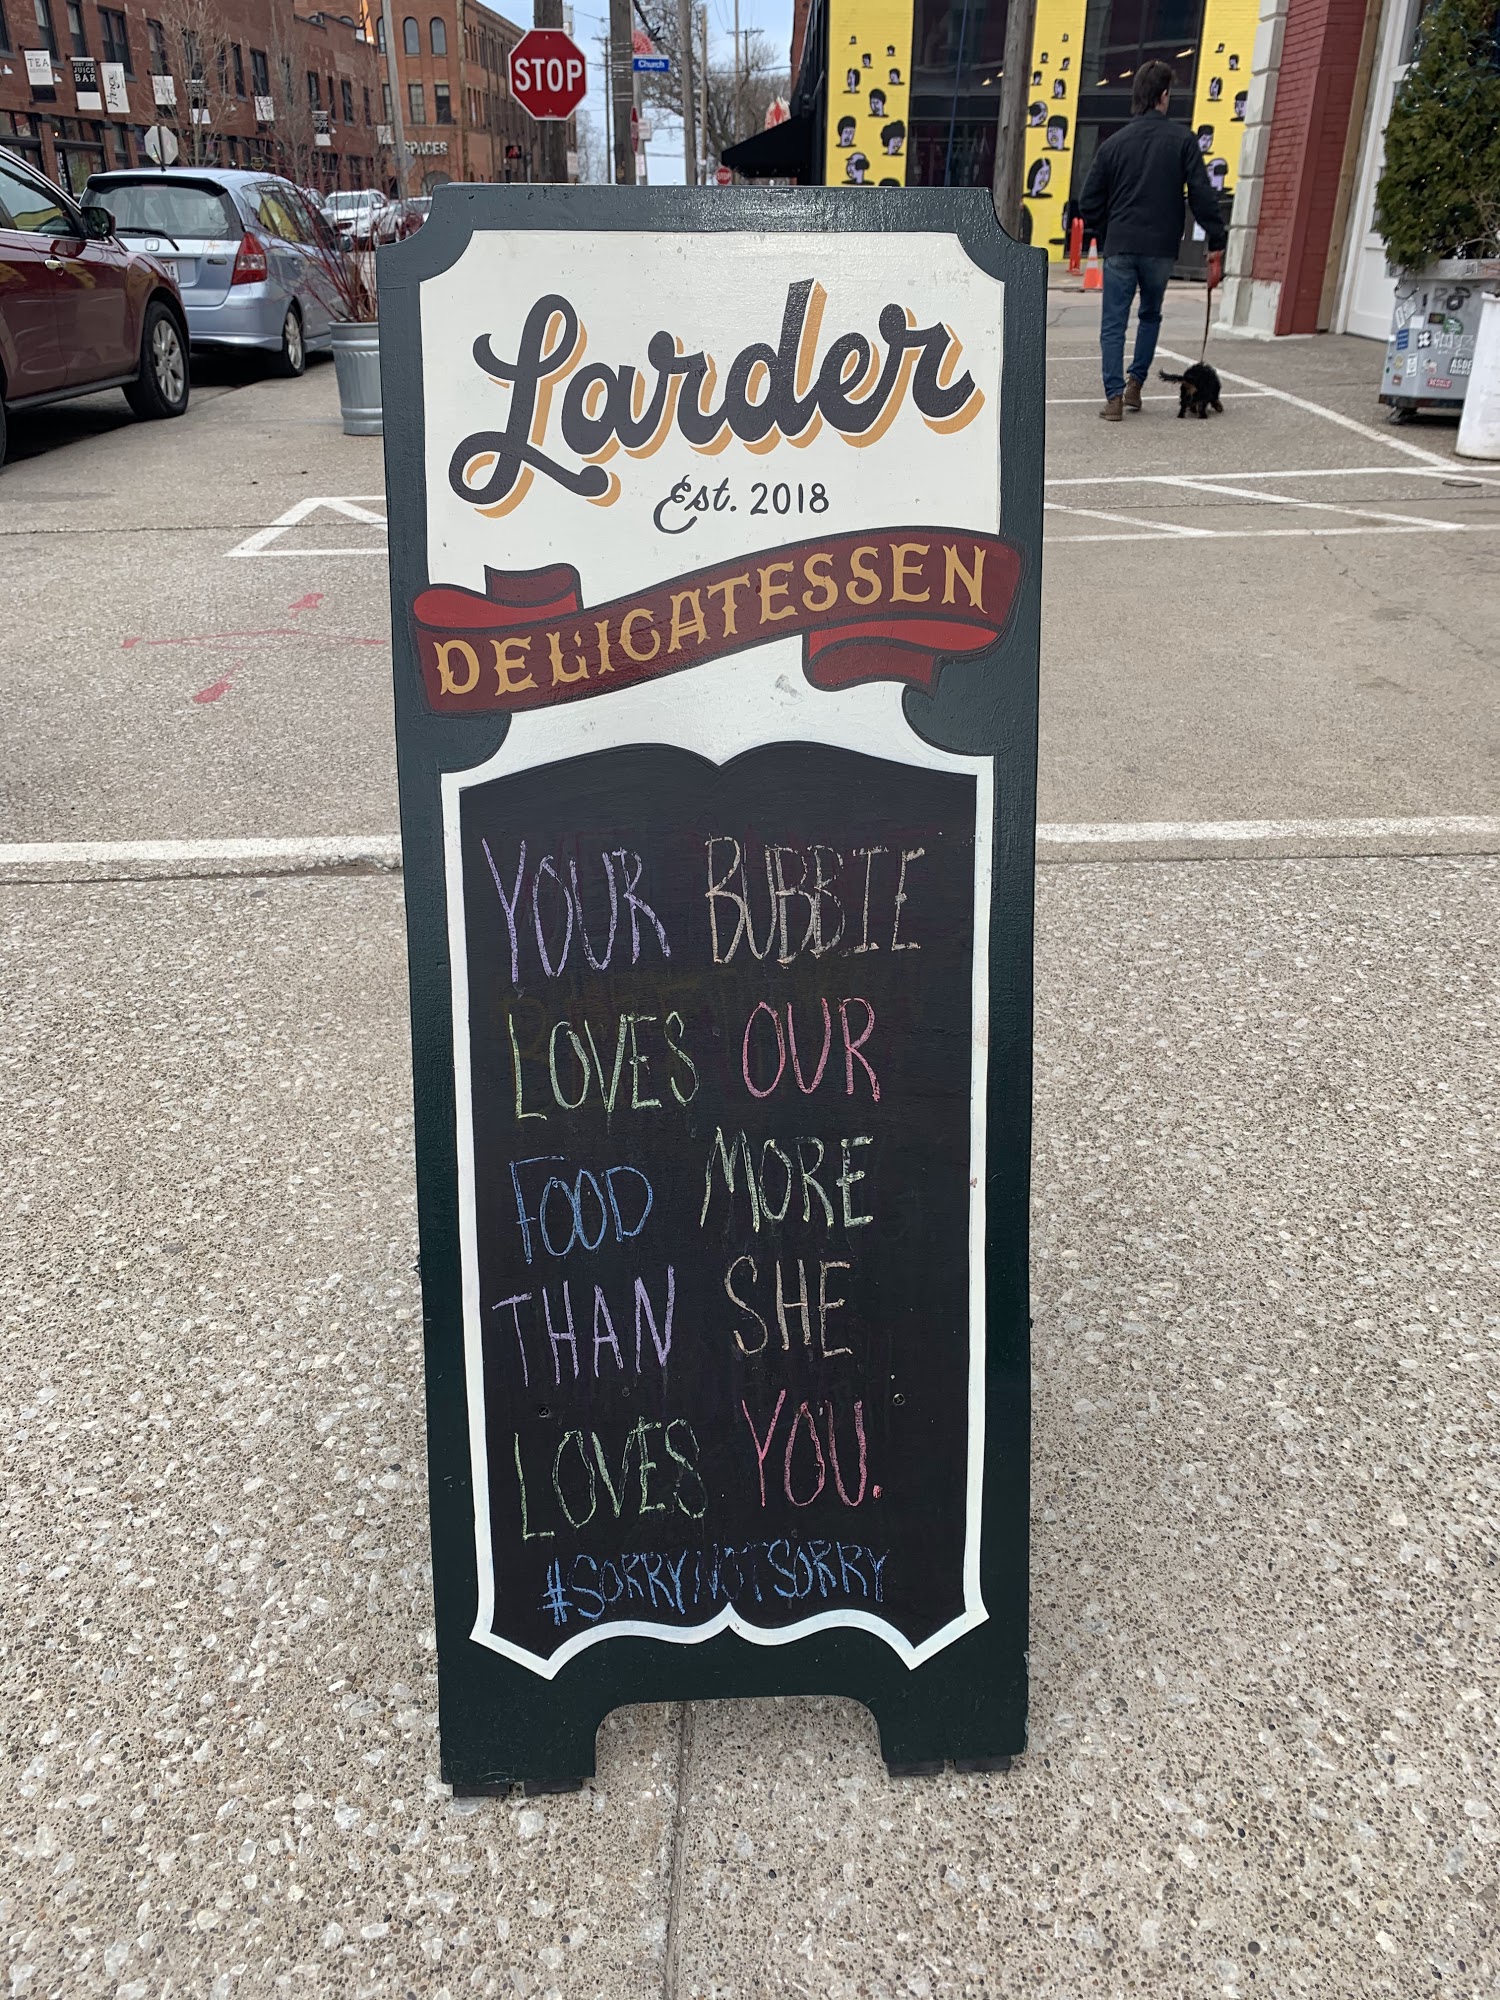 TEA
JUICE
BAR
SPACES
STOP
Church
Larder
Est. 2018
DELICATESSEN
YOUR BUBBIE
LOVES OUR
FOOD MORE
THAN SHE
LOVES YOU.
#SORRYNOTSORRY